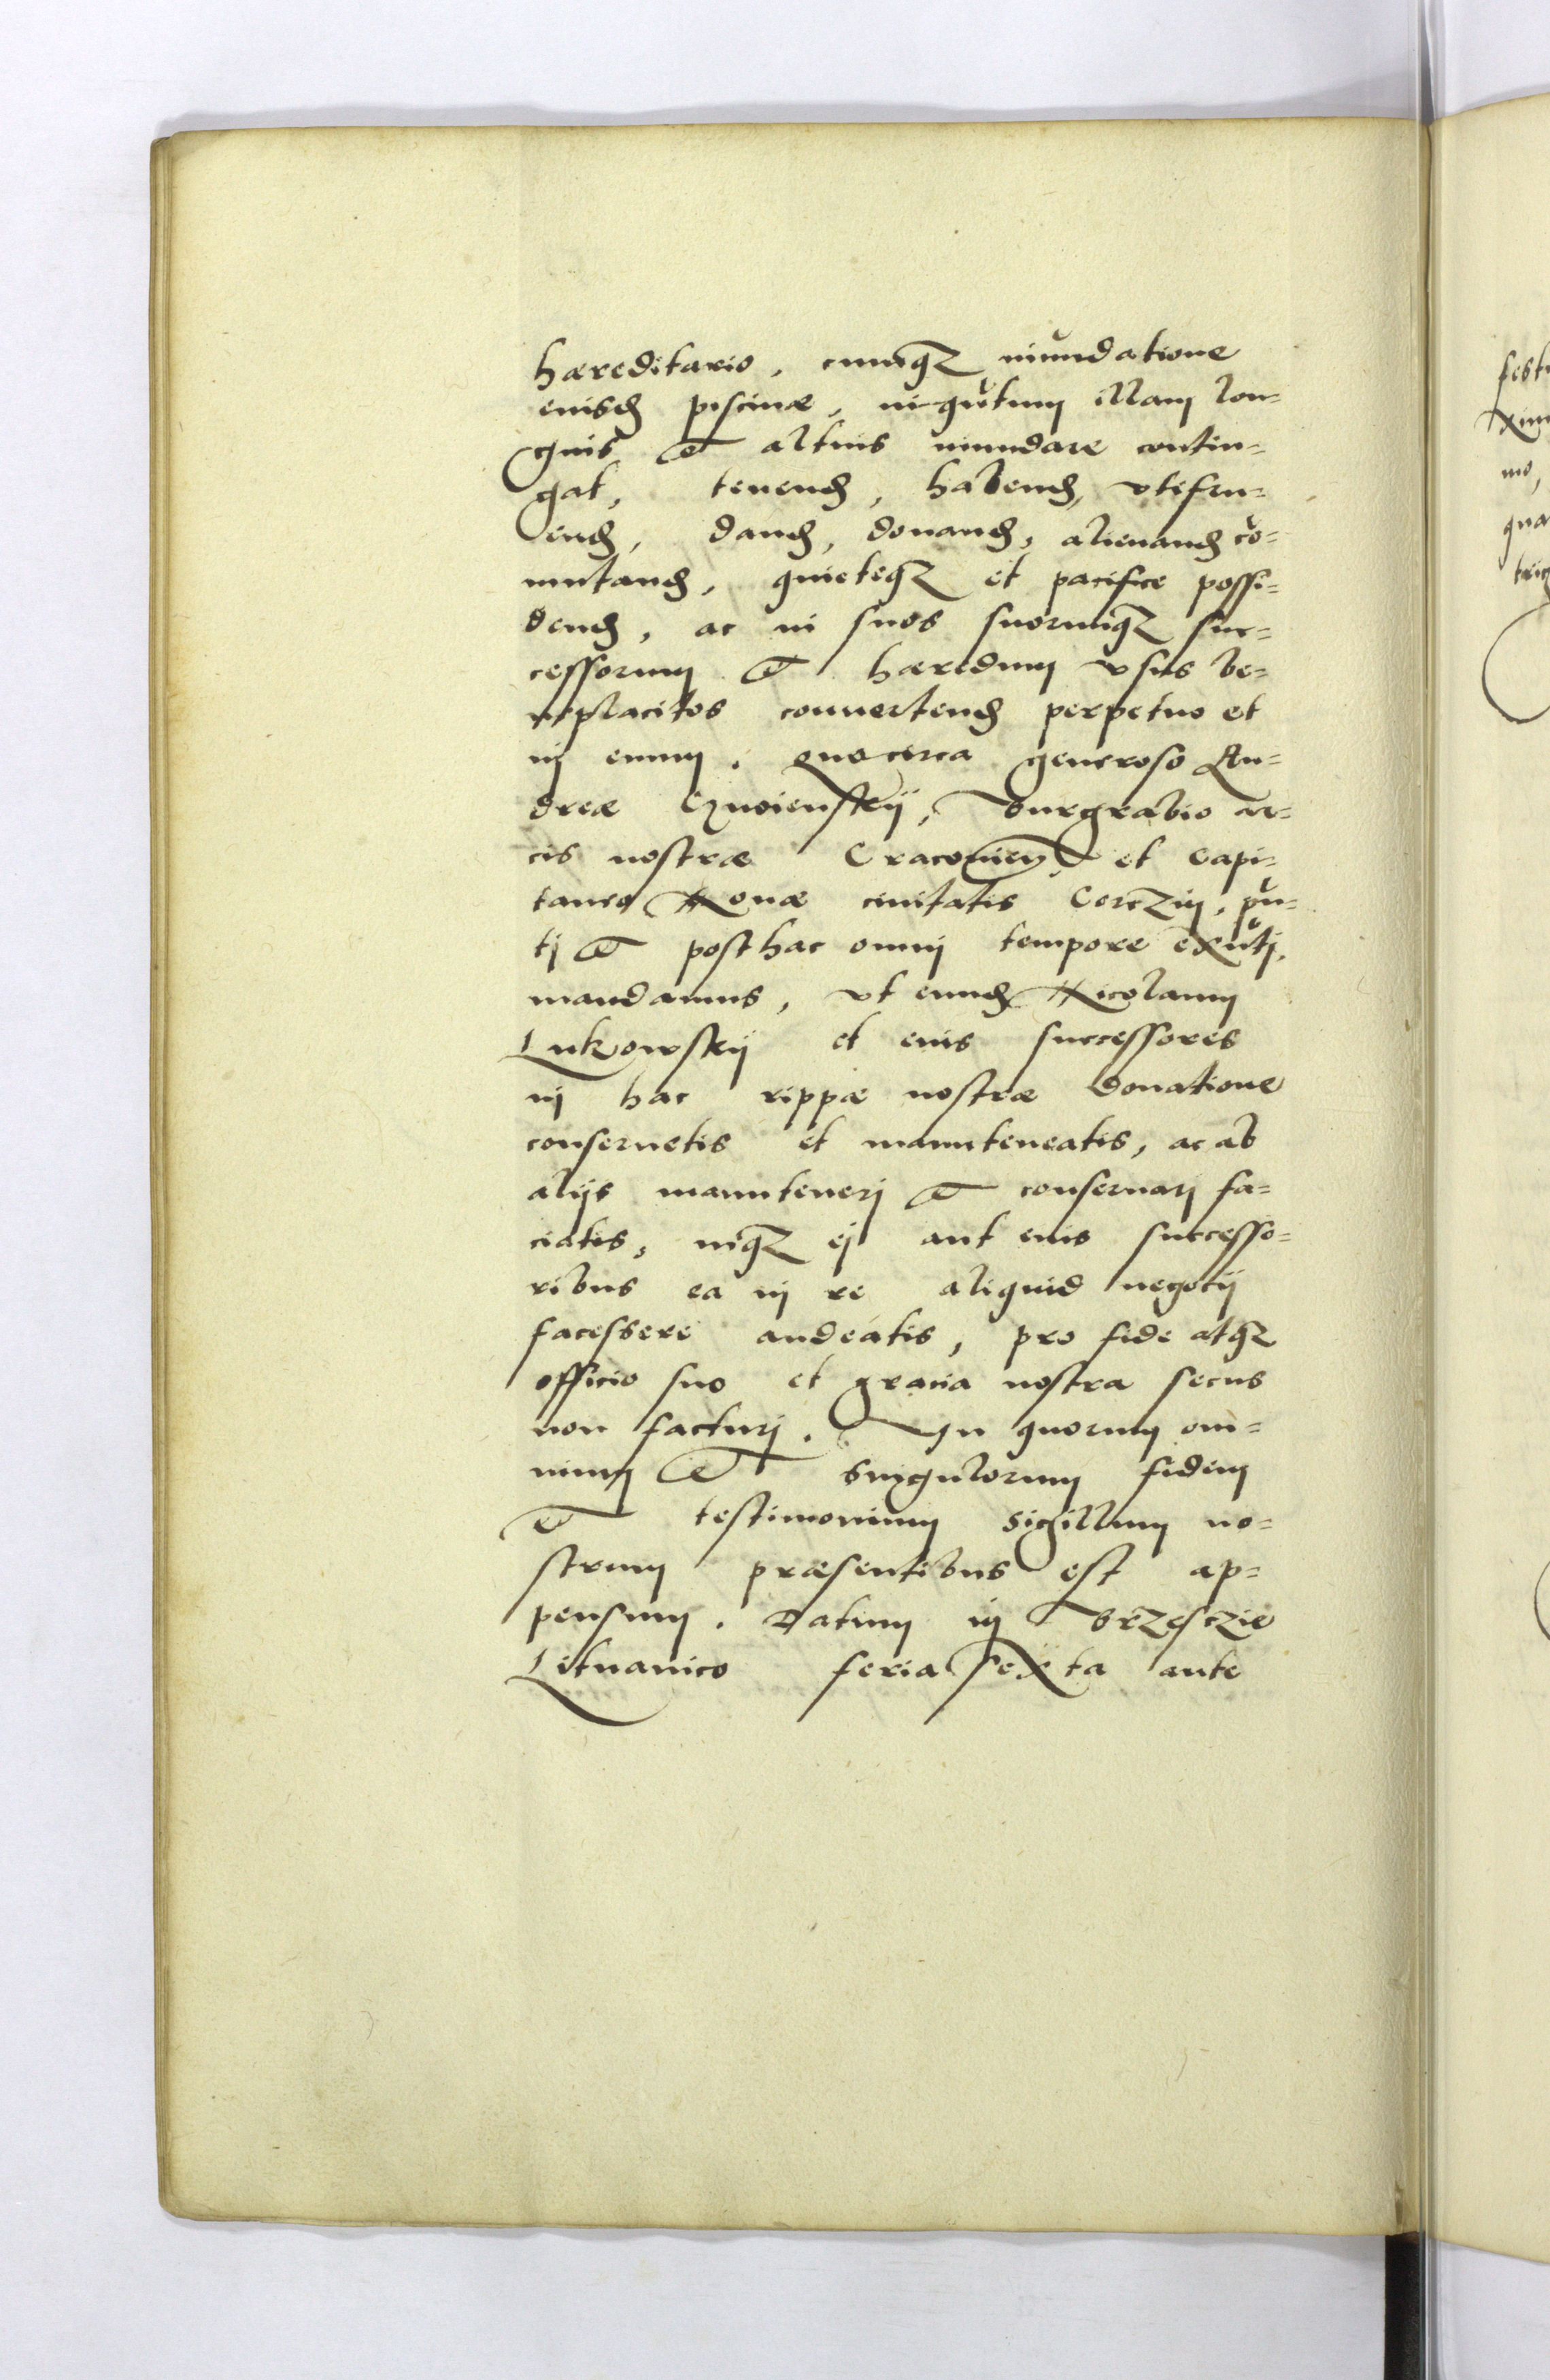 hæreditario, cumqꝫ inundatione
eiusđ piscinæ, inqūtum illam lon=
gius et altius inundare contin=
gat, tenenđ, habenđ, vtifru=
enđ, danđ, donanđ, alienanđ cō=
mutanđ, quieteqꝫ et pacifice possi=
denđ, ac in suos suorumqꝫ suc=
cessorum et hæredum vsus be=
neplacitos conuertenđ perpetuo et
in euum. Quocirca generoso An=
dreæ burgrabio ar=
cis nostræ Cracouieñ et capi=
taneo Nouæ ciuitatis Corczin, pñ=
ti et posthac omni tempore exñti,
mandamus, vt eunđ Nicolaum
Lukowskij et eius successores
in hac rippæ nostræ donatione
conseruetis et manuteneatis, ac ab
alijs manuteneri et conseruari fa=
ciatis, ei aut eius successo=
ribus ea in re aliquid negotij
facessere audeatis, pro fide atqꝫ
officio suo et gratia nostra secus
non facturi. In quorum om=
nium et singulorum fidem
et testimonium sigillum no=
strum præsentibus est ap=
pensum. Datum in Brzesczie
Lituanico feria sexta ante